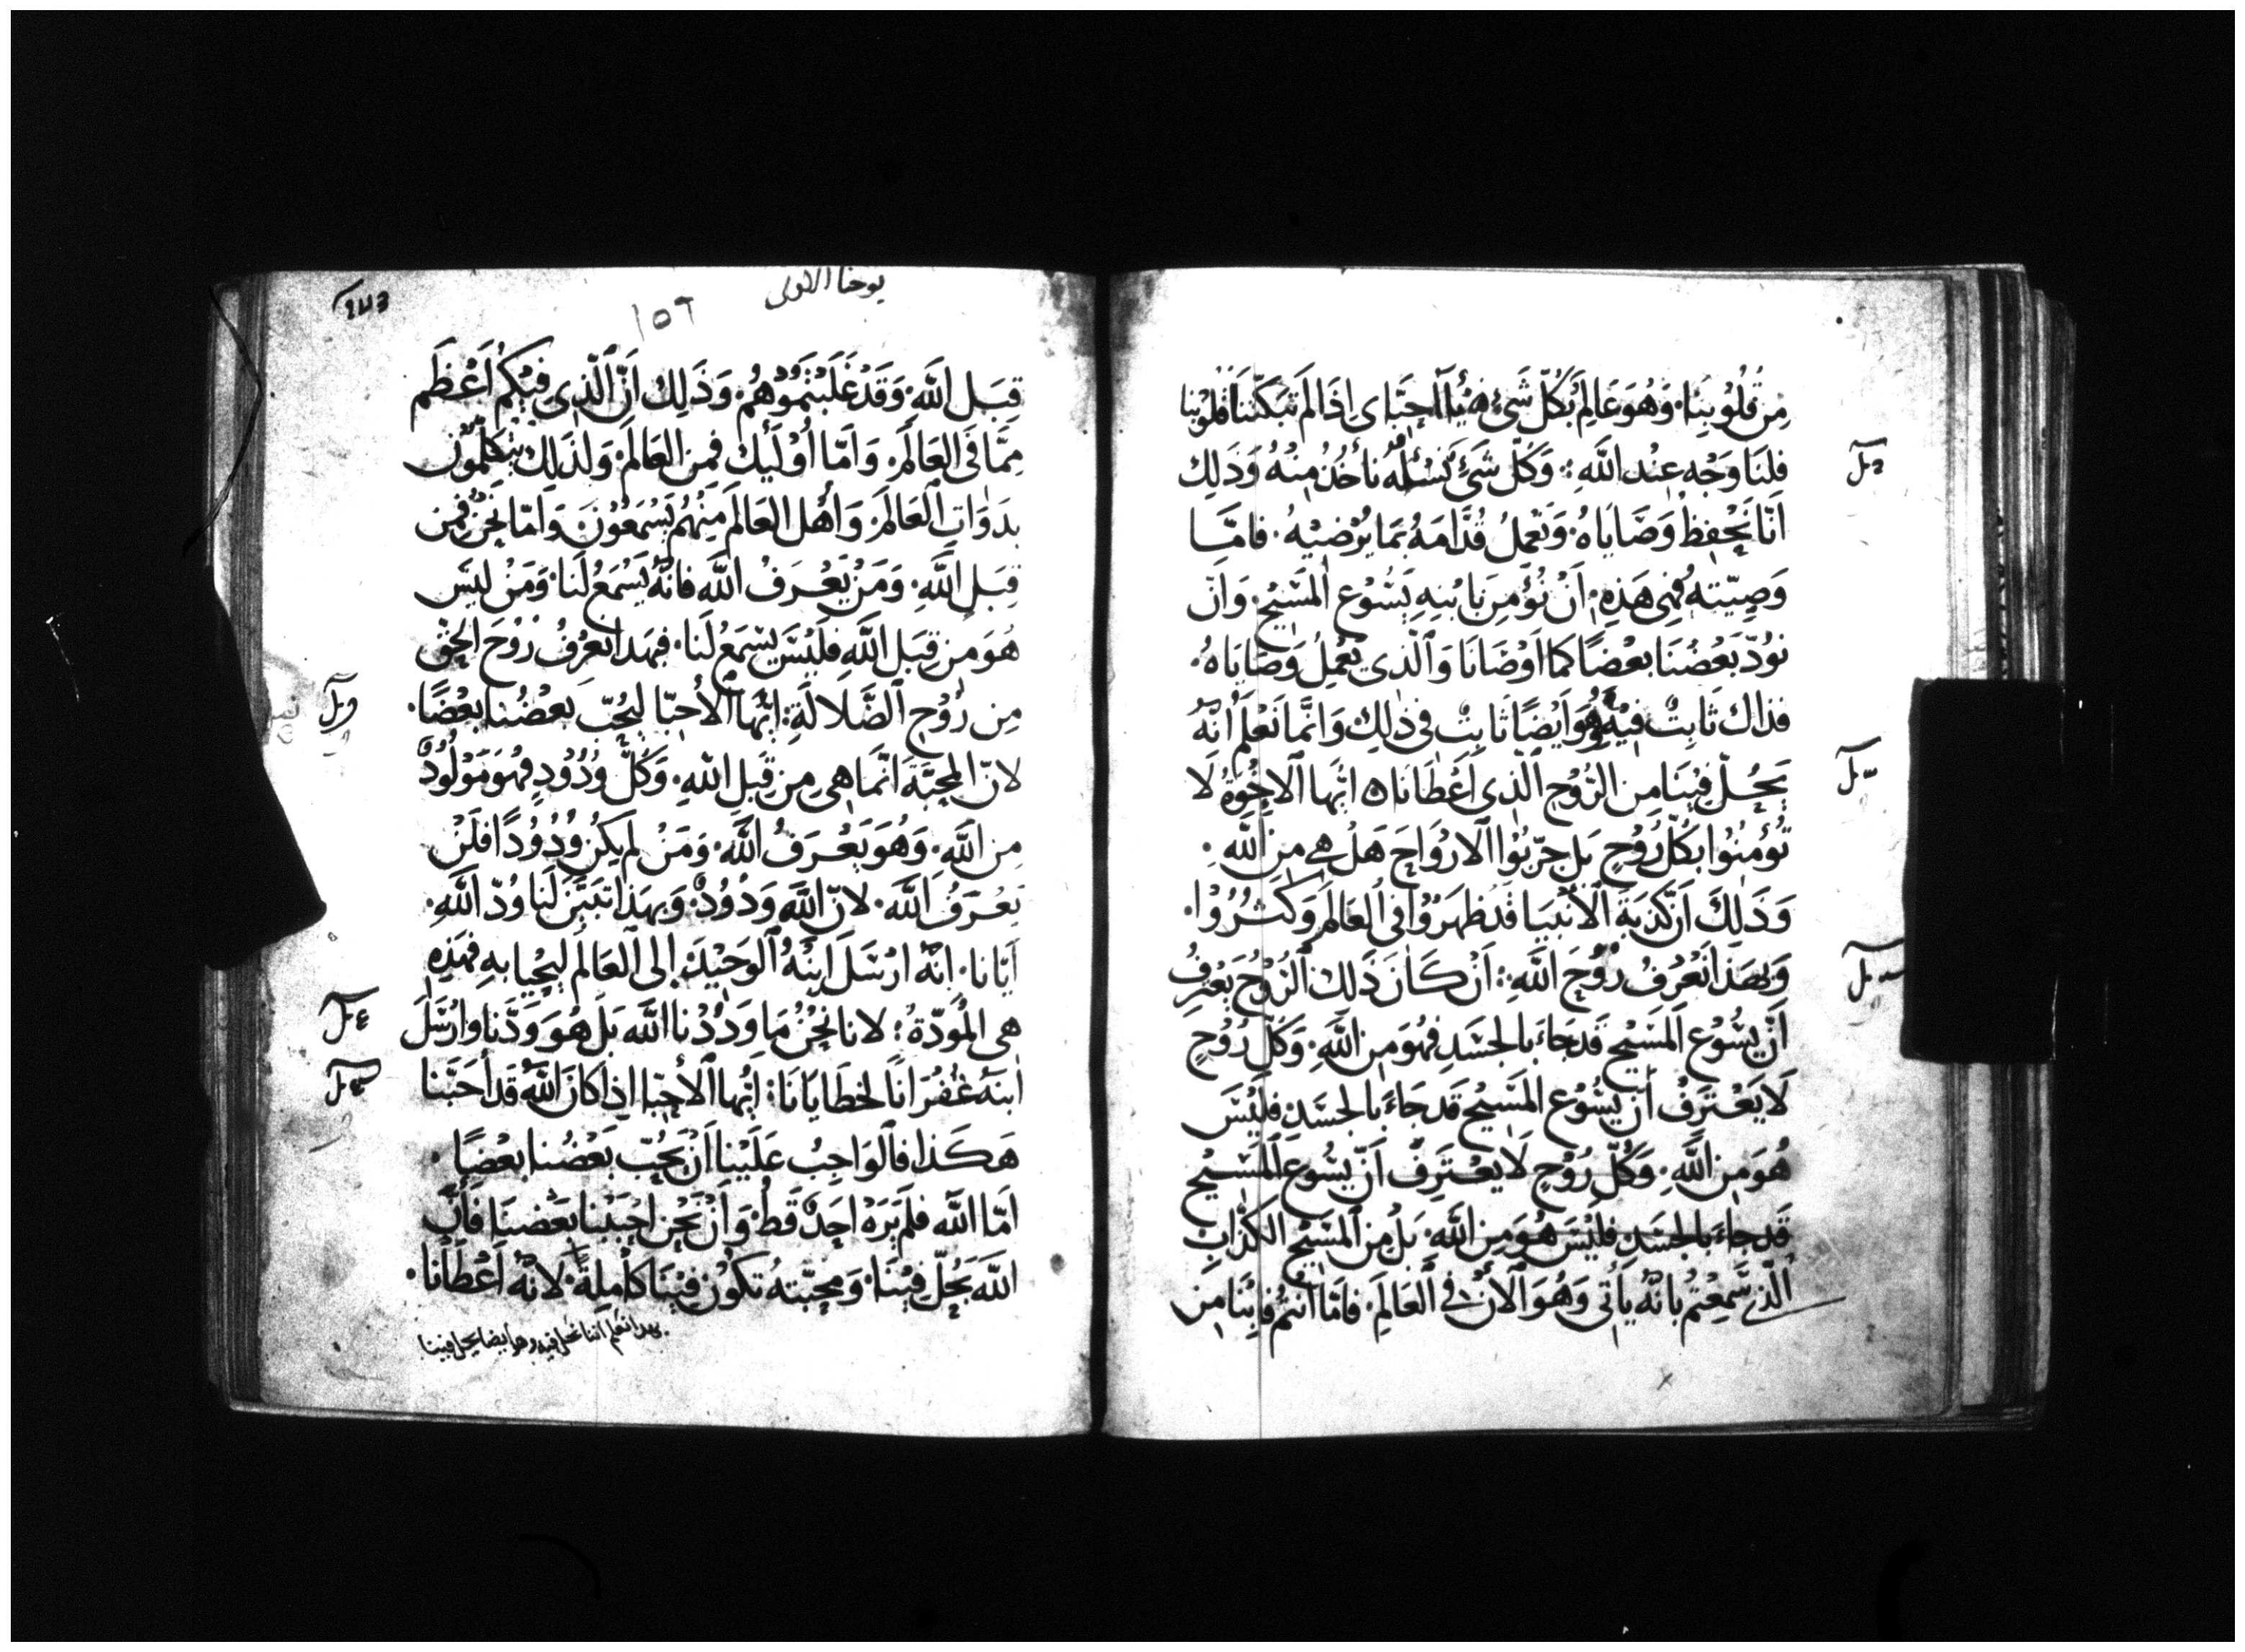 مِن قُلُوْبِنَا. وَهُوَ عَالِمٌ بَكُلّ شَئٍ ه يَا اَحِبَّاى اذَا لَم تبَكّتنا قُلوْبنا
فلِنَا وَجْه عِنْد اللَّهِ: وَكَلّ شَئٍ نَسْئَلُهُ نأخُذُ مِنْهُ وَذَلِك
اَنّا نَحْفِظُ وَصَايَاهُ. وَنَعْمِلُ قُدَّامَهُ بَمَا يُرْضِيْهُ. فامَّا
وَصِيّته فهى هَذِهِ. اَنْ نُؤْمِن بَابْنِهِ يَسُوْع المَسِيْح. وَاَنّ
نوُدّ بَعْضُنَا بعْضًا كما اَوْصَانَا وَالّذى يَعْمِلُ وَصَايَاهُ.
فذاك ثَابِتٌ فيْهِ وَهُوَ ايْضًا ثَابِتٌ فى ذلِك وَانَّمَا نَعْلَمُ انّهُ
يَحُلّ فِيْنَا مِن الرُّوْح الّذى اَعْطَانَا ه ايُّها الاخْوَةُ لَا
تُؤْمِنُوا بكُلّ رُوْحٍ بَل جرّبُوا الارْوَاحَ هَلْ هى مِن اللَّهِ.
وَذَلِكَ اَنّ كَذبَةَ الاَنْبيَا قَدْ ظهَرُوا فى العَالَم وَكَثرُوْا.
وَبهَذَا نَعْرفُ رُوْحَ اللَّهِ: اَنْ كَانَ ذَلِك الرُّوْحُ يَعْترفُ
اَنّ يسُوْع المَسِيْح قَدجَاءَ بالجسَدِ فهُوَ مِن اللَّهِ. وَكلّ رُوْحٍ
لَا يَعْترَفُ اَن يسُوْع المَسِيْح قَدجَاءَ بالجسَدِ فليْسَ
هُوَ مِن اللَّهِ. وَكُلّ رُوْحٍ لَا يعْترَفْ اَنّ يسُوع المَسِيْح
قَد جاءَ بالجسَدِ فليْسَ هُوَ مِن اللَّهِ بَلْ مِن المَسِيْح الكذّاب
الّذى سَمِعْتُم بانّهُ ياتى وَهُوَ الآنَ فى العَالَمِ. فامّا انتُم فانّنَا مِن
يوحنا الاولى
١٥٦
قِبَل اللَّهِ. وَقَدْ غَلَبْتُمُوْهُم. وَذَلِك اَنّ الّذى فِيْكُم اَعْظَم
مِمَّا فى العَالَم. وَاَمَّا اُوْلَيِك فمِن العَالَم. وَلذلِك يتكَلّمُوْن
بدَوَاتِ العَالَم. وَاَهْل العَالَم مِنْهُم يَسْمَعُوْنَ. وَامّا نحنُ فمِن
قِبَل اللَّهِ. وَمَنْ يَعْرَفُ اللَّه فانّهُ يَسْمَعُ لَنا. وَمَنْ ليسَ
هُوَ مِن قِبَل اللَّهِ فلَيْسَ يسْمَعُ لَنا. فبهَذا نعْرفُ رُوْحَ الحق
مِن رُوْحِ الضَّلالَةِ: ايُّها الاَحِبّا ليُحِبّ بَعْضُنا بعْضًا.
لانّ المحبَّةَ انّمَا هى مِن قِبلِ اللهِ. وَكُلّ وَدُوْدٍ فهُوَ مَوْلُوْدٌ
مِن اللَّهِ. وَهُوَ يَعْرَفُ اللَّهَ. وَمَنْ لم يكُن وَدُوْدًا فلَنْ
يَعْرَفُ اللَّهَ. لانّ اللَّهَ وَدُوْدٌ. وَبهَذا تبَيَّن لَنا وُدّ اللَّهِ.
ايّانا. انّهُ ارْسَلَ اِبْنَهُ الوَحِيْد الى العَالَم ليحْيا بهِ فهَذِهِ
هى المُوَدّةُ: لانا نحْنُ مَا وَدَدْنا اللَّه بَل هُوَ وَدّنا وارْسَلَ
ابنَهُ غُفْرَانًا لخطايَانَا: ايُّها الاَحِبّا اذا كانَ اللَّهُ قَد اَحَبّنا
هَكَذا فالوَاجِبُ عَليْنا اَنْ يُحِبّ بَعْضُنا بعْضًا.
اَمّا اللَّه فلَم يَرَهْ احَدٌ قَط. وَاَنْ نَحْن احْبَبْنا بَعْضنَا فَاَنّ
اللَّه يَحُلّ فيْنَا. وَمَحبّتهُ تكوُن فِيْنَا كامِلِة. لانّهُ اَعْطَانا.
بهدا نعلم اننا نحل فيه وهو ايضا يحل فينا